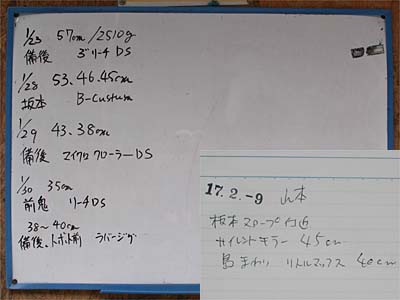 1/23 57cm/2510g
備後 3"リーチDS
1/28 53.46.45cm
坂本 B-Custum
1/29 43.38cm
備後 マイクロクローラーDS
1/30 35cm
前鬼 リーチDS
38〜40cm
備後、トボト前 ラバージグ
17.2.-9 山本
坂本スロープ付近
サイレントキラー 45cm
島まわり リトルマックス 40cm